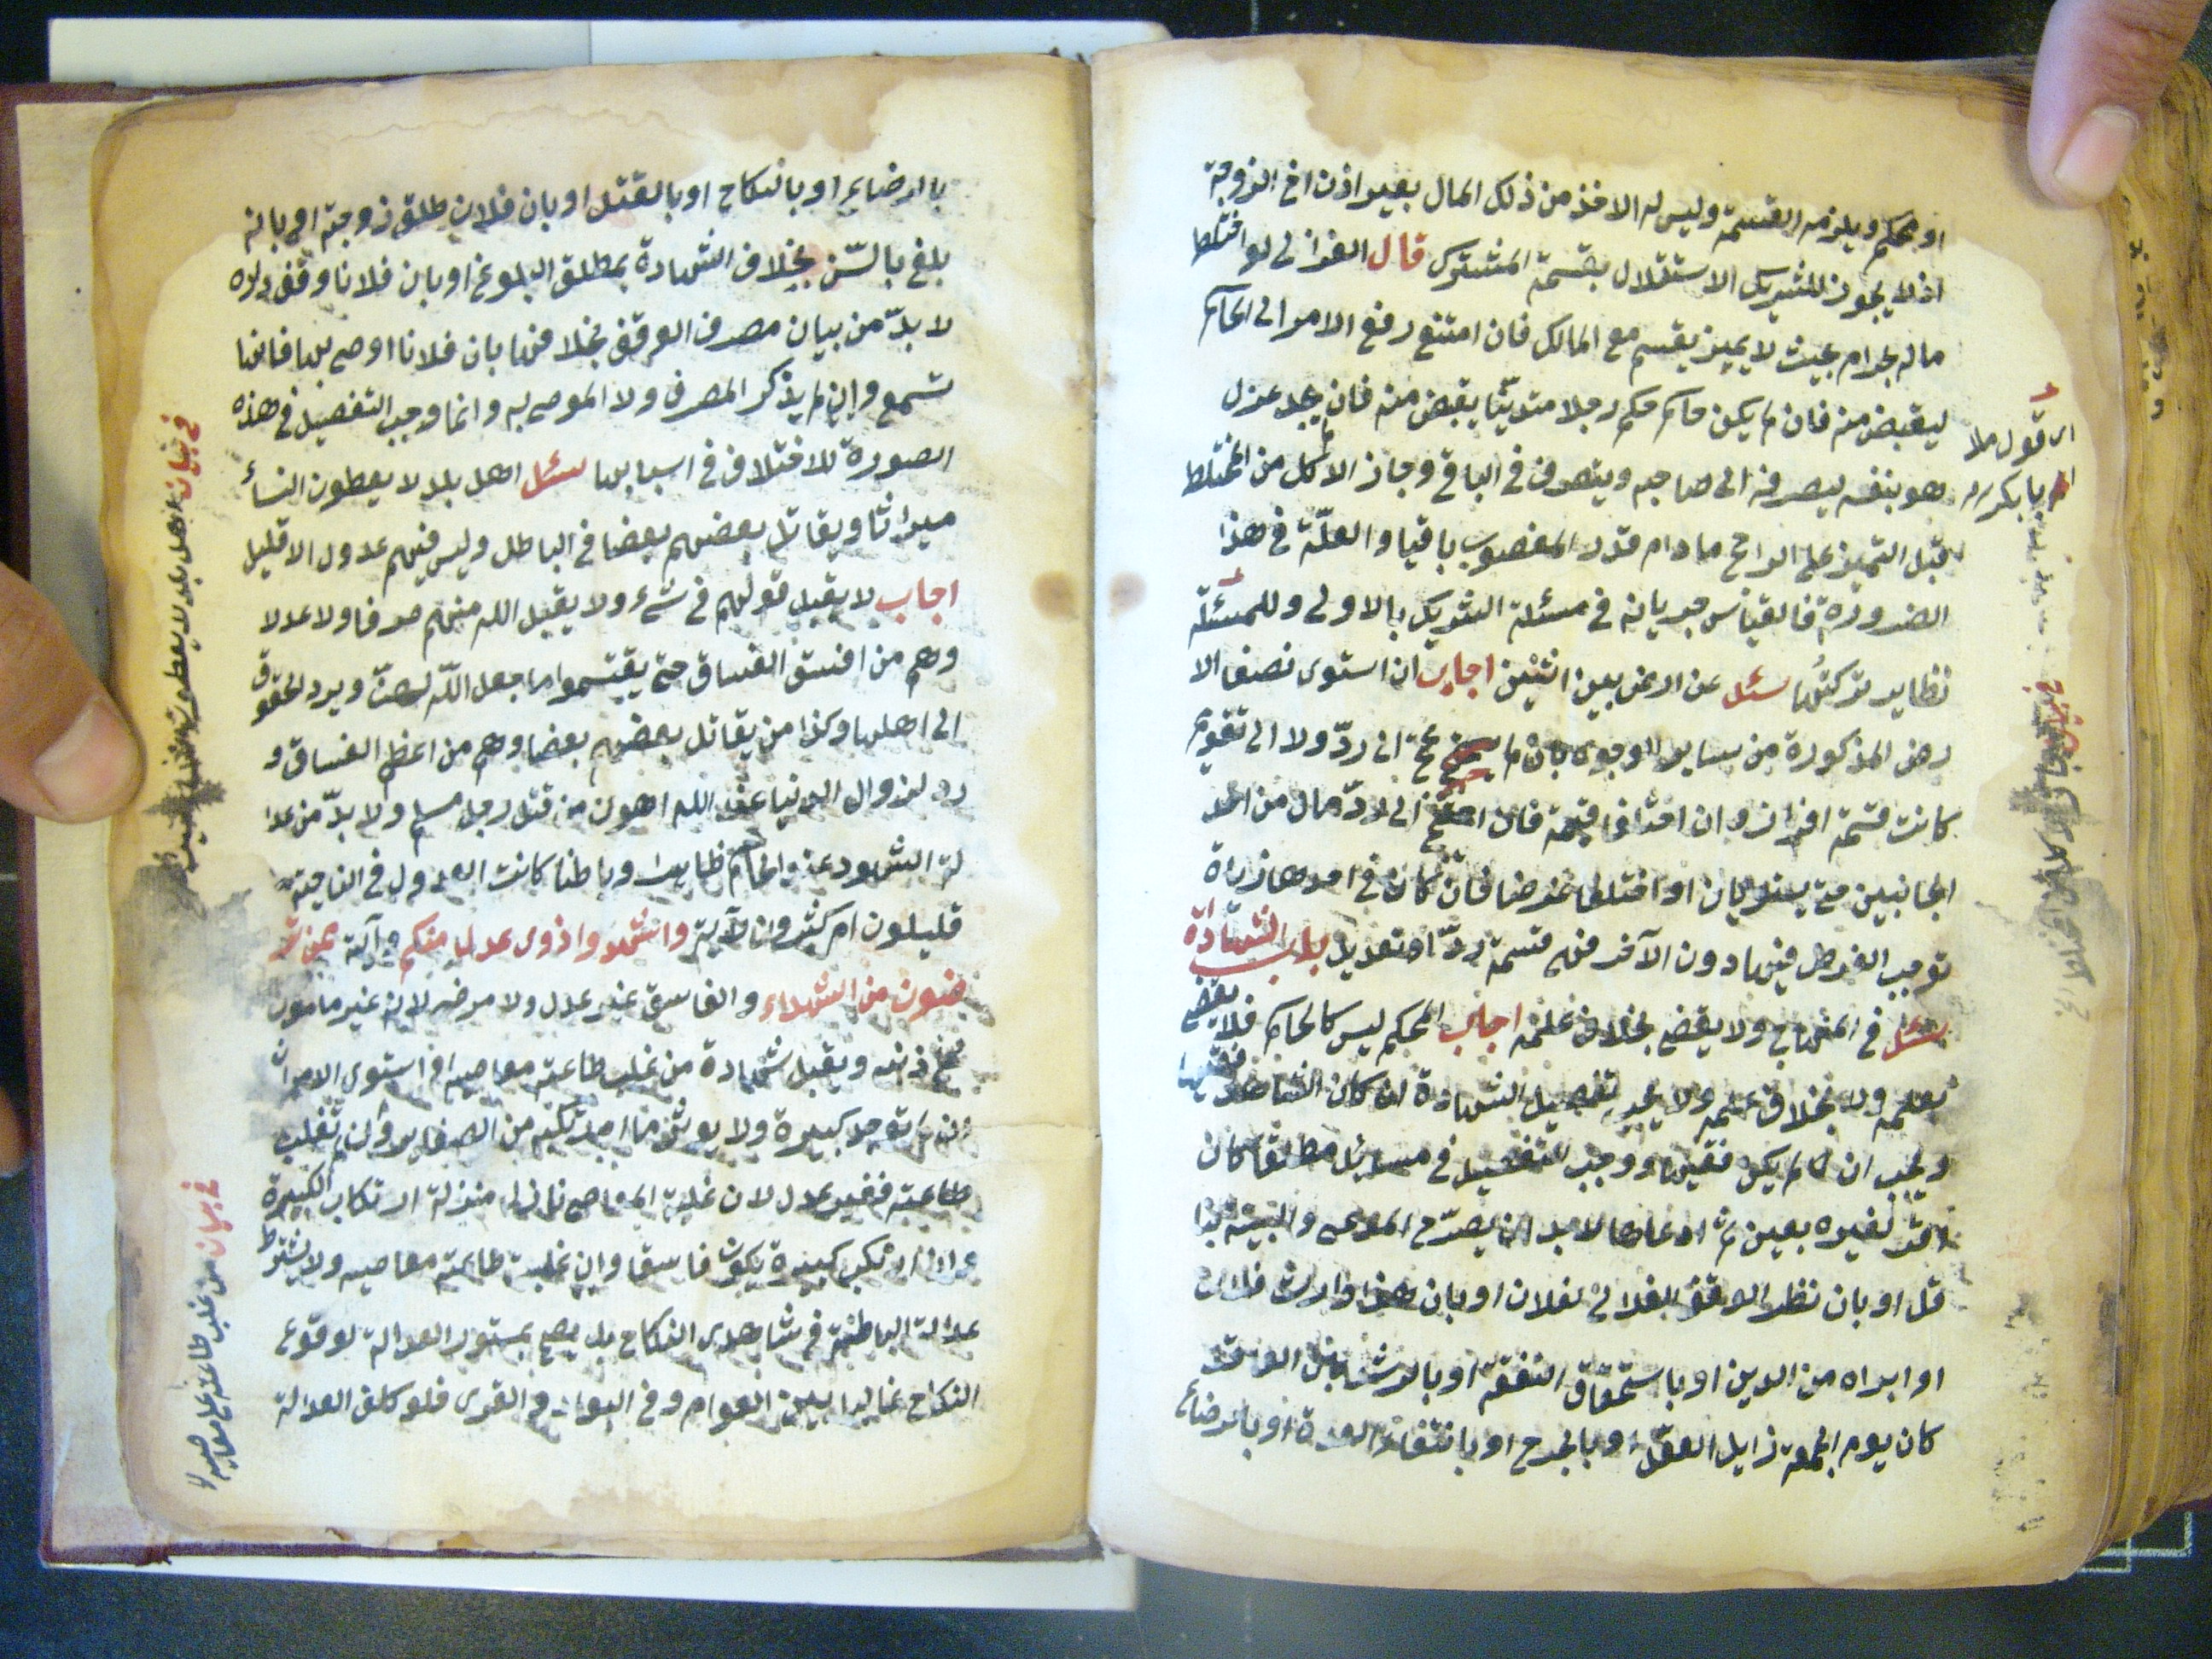 او محكم ويلزمه القسمة وليس له الاخذ من ذلك المال بغير اذن اخ الزوجة
اذ لا يجوز للشريك الاستقلال بقسمة المشترك قال الغزالى لو اختلط
ماله بحرام بحيث لا يميز يقسم مع المالك فان امتنع رفع الامر الى الحاكم
ليقبض منه فان لم يكن حاكم حكم رجلا متديّنا يقبض منه فان عزل
هو بنفسه ليصرفه الى صاحبه ويتصرف فى الباقى وجاز الاكل من المختلط
قبل التميز على الراجح مادام قدر المغصوب باقيا والعلّة فى هذا
الضرورة فالقياس جريانه فى مسئلة الشريك بالاولى وللمسئلة
نظاير تركتُها سئل عن الارض بين اثنين اجاب ان استوى نصفا الا
رض المذكورة من ساير الوجوه بان لم الى ردّ ولا الى تقويم
كانت قسمة افراز وان اختلفا قيمة فان الى ردّ مال من احد
الجانبين حتى يستويان او اختلفا غرضا فان كان فى احدهما زيادة
توجب الفرض فيها دون الآخر فهى قسمة ردّ او تعديل باب الشهادة
سئل فى المنهاج ولا يقضى بخلاف علمه اجاب المحكم ليس كالحاكم فلا يقضى
بعلمه ولا بخلاف علمه ولا يجب تفصيل الشهادة ان كان الشاهد فقيها
ويجب ان لم يكن فقيها ووجب التفصيل فى مسائل مطلقا كان
اقرّ لغيره بعين ثم ادعاها لابد ان يصرّح المدعى والبيّنة
قل او بان نظر الوقف الفلانى لفلان او بان هذا وارث فلان
او ابراه من الدين او باستحقاق النفقة او بالرشد
كان يوم الجمعة زايل العقل او بالجرح او بانقضاء العدة او بالرضاع
اى قول ملا
ابا بكر ره
بالرضاع او بالنكاح او بالقتل او بان فلان طلق زوجته او بانه
بلغ بالسّن بخلاف الشهادة بمطلق البلوغ او بان فلانا وقف داره
لا بدّ من بيان مصرف الوقف بخلافها بان فلانا اوصى بها فانها
تسمع وان لم يذكر المصرف ولا الموصى به وانما وجب التفصيل فى هذه
الصورة للاختلاف فى اسبابها سئل اهل بلد لا يعطون النساء
ميراثا ويقاتل بعضهم بعضا فى الباطل وليس فيهم عدول الا قليل
اجاب لا يقبل قولهم فى شئ ولا يقبل الله منهم صرفا ولا عدلا
وهم من افسق الفساق حتى يقتسموا ما جعل اللّه لهنّ ويرد الحقوق
الى اهلها وكذا من يقاتل بعضهم بعضا وهم من اعظم الفساق و
رد لزوال الدنيا عند الله اهون من قتل رجل مسلم ولا بدّ من عدا
لة الشهود عند الحاكم ظاهرا وباطنا كانت العدول فى الناحية
قليلون ام كثيرون لآية واشهدوا ذوى عدل منكم وآية ممن تر
ضون من الشهداء والفاسق غير عدل ولا مرضى لانه غير مامون
ويقبل شهادة من غلب طاعته معاصيه او استوى الامران
ان لم توجد كبيرة ولا يؤثر ما ارتكبه من الصغاير وان لم تغلب
طاعته فغير عدل لان غلبة المعاصى نازلة منزلة ارتكاب الكبيرة
وان ارتكب كبيرة يكون فاسقا وان غلبت طاعته معاصيه ولا يشترط
عدالة الباطنة فى شاهدى النكاح بل يصح بمستور العدالة لوقوع
النكاح غالبا بين العوام وفى البوادى والقرى فلو كلف العدالة
فى بيان اهل بلد لا يعطون النساء
فى بيان من غلب طاعته على معاصيه